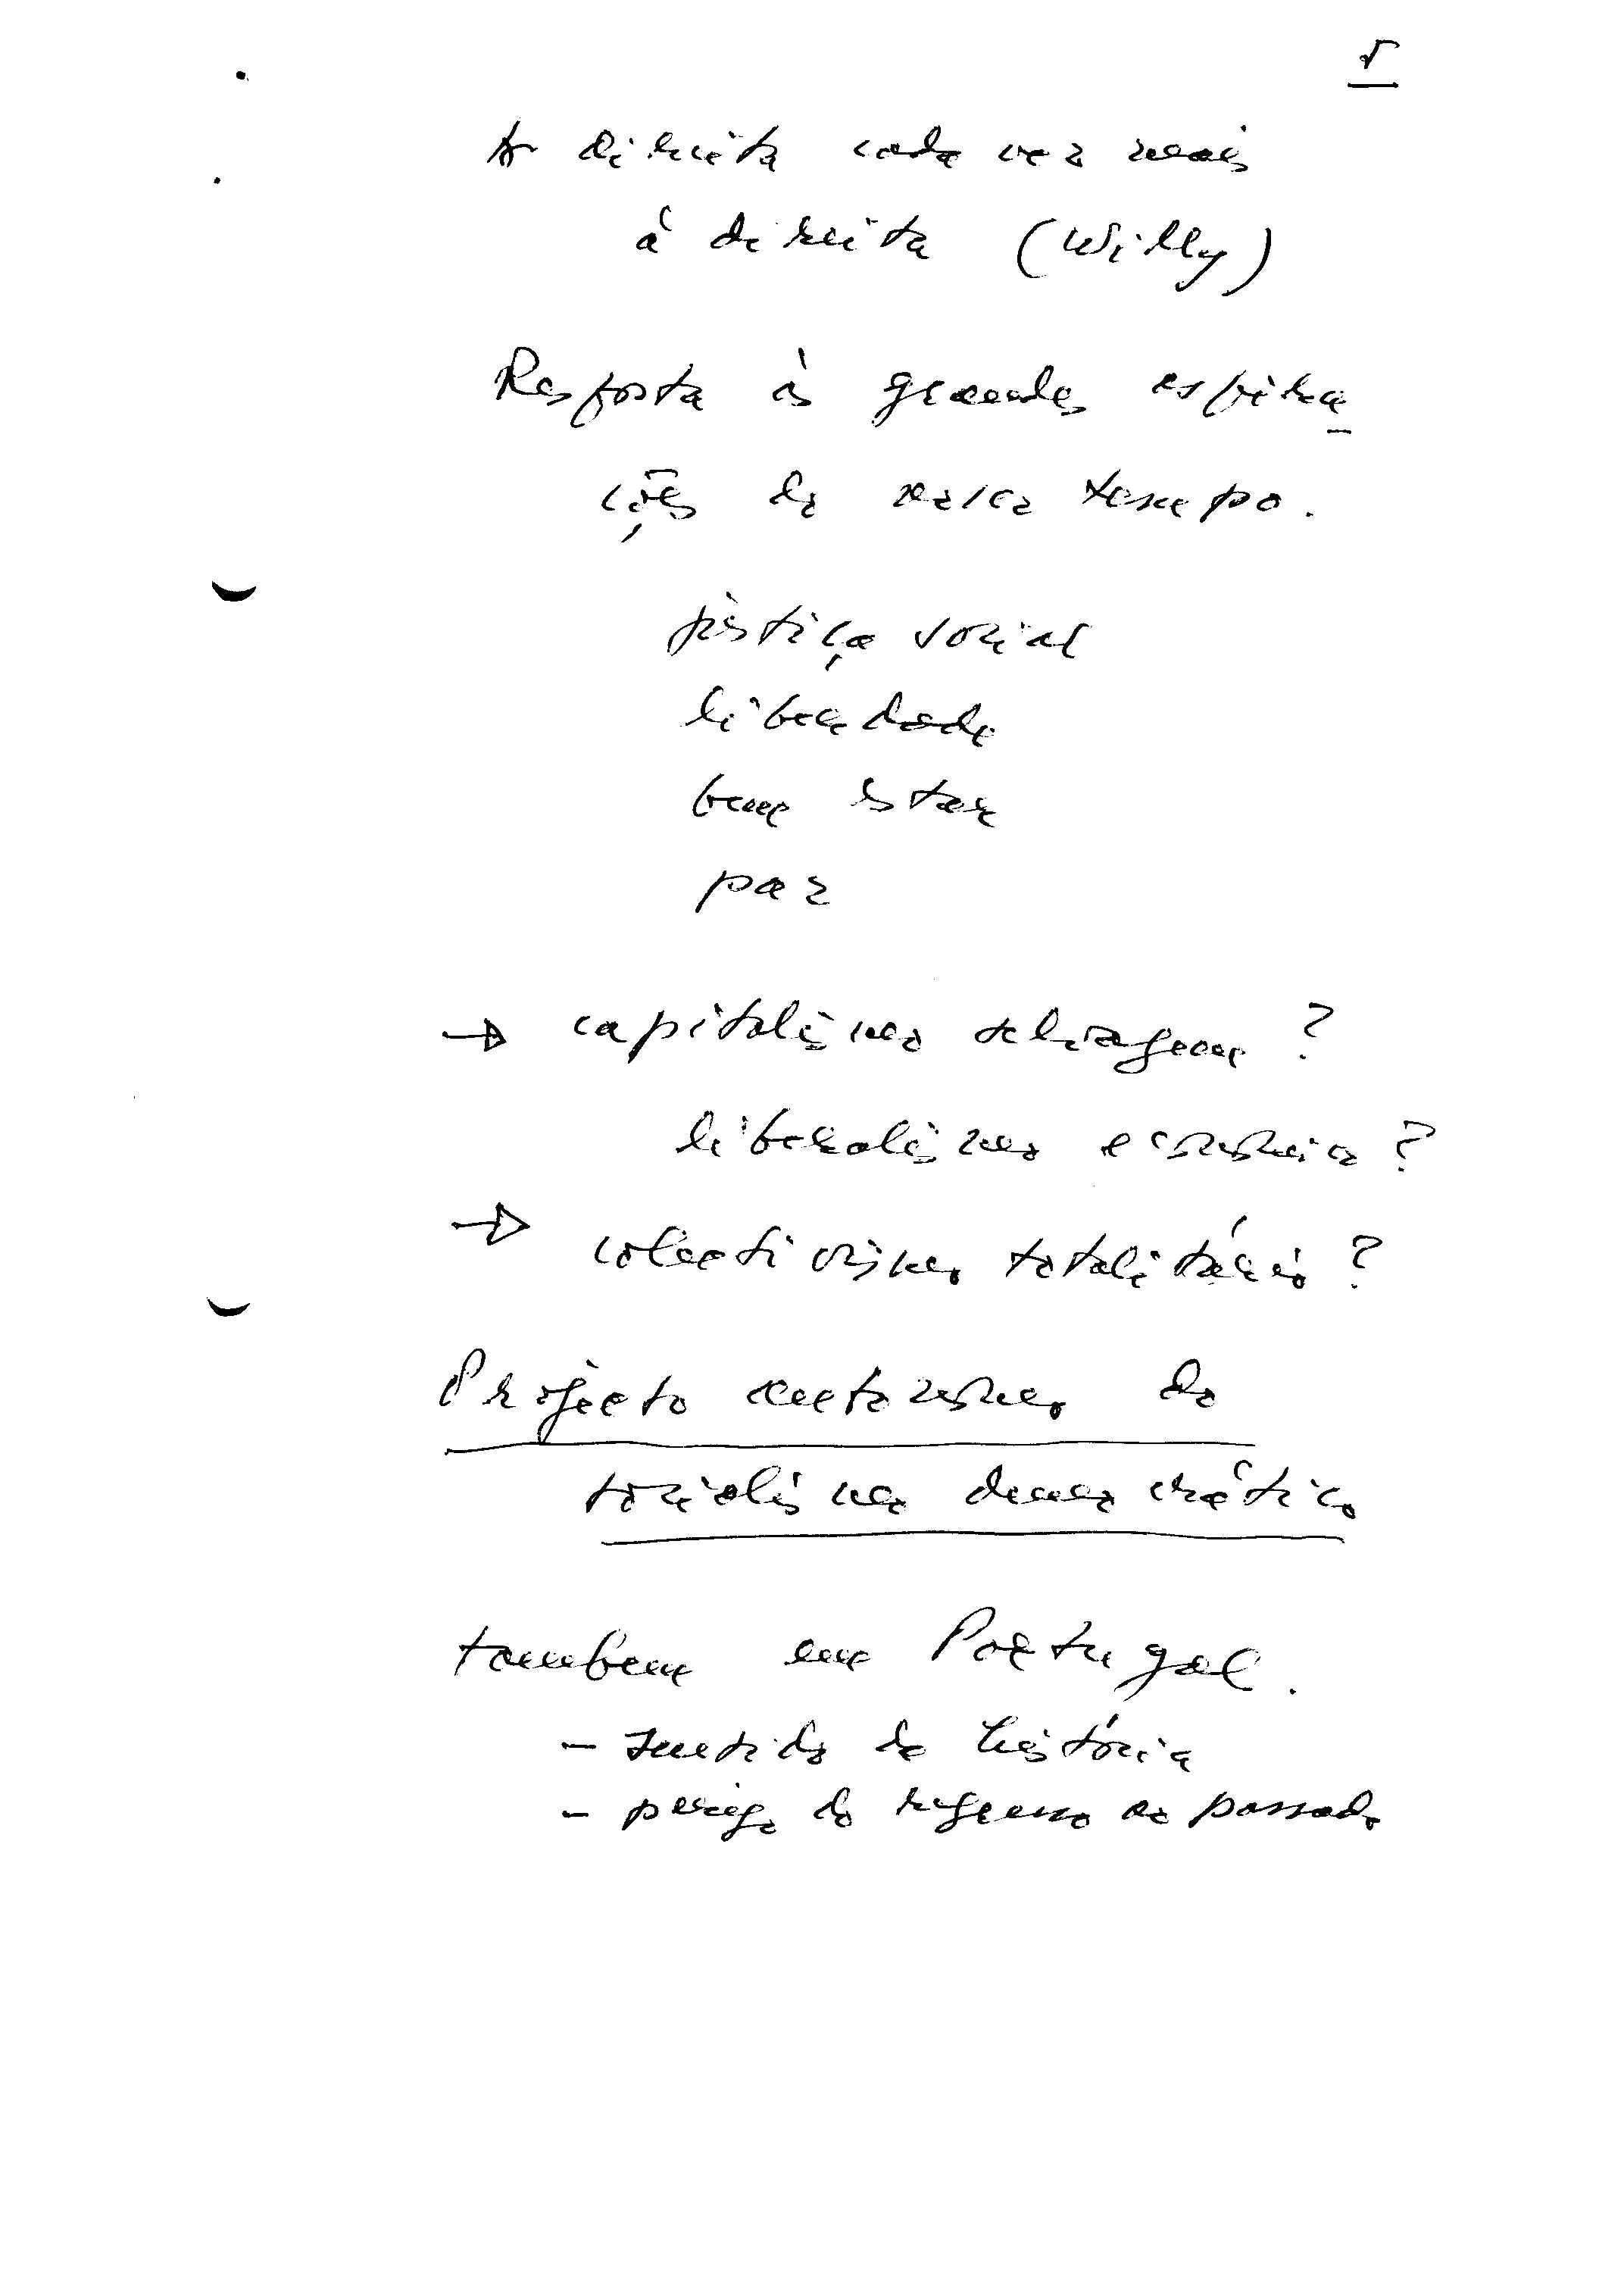 5
A direita cada vez mais
à direita (Willy)
Resposta às grandes aspira
ções do nosso tempo.
justiça social
liberdade
bem estar
paz
→ capitalismo selvagem ?
liberalismo economico ?
→ colectivismo totalitário ?
Projecto autonomo do
socialismo democrático
tambem em Portugal.
- sentido da história
- perigo do regresso ao passado